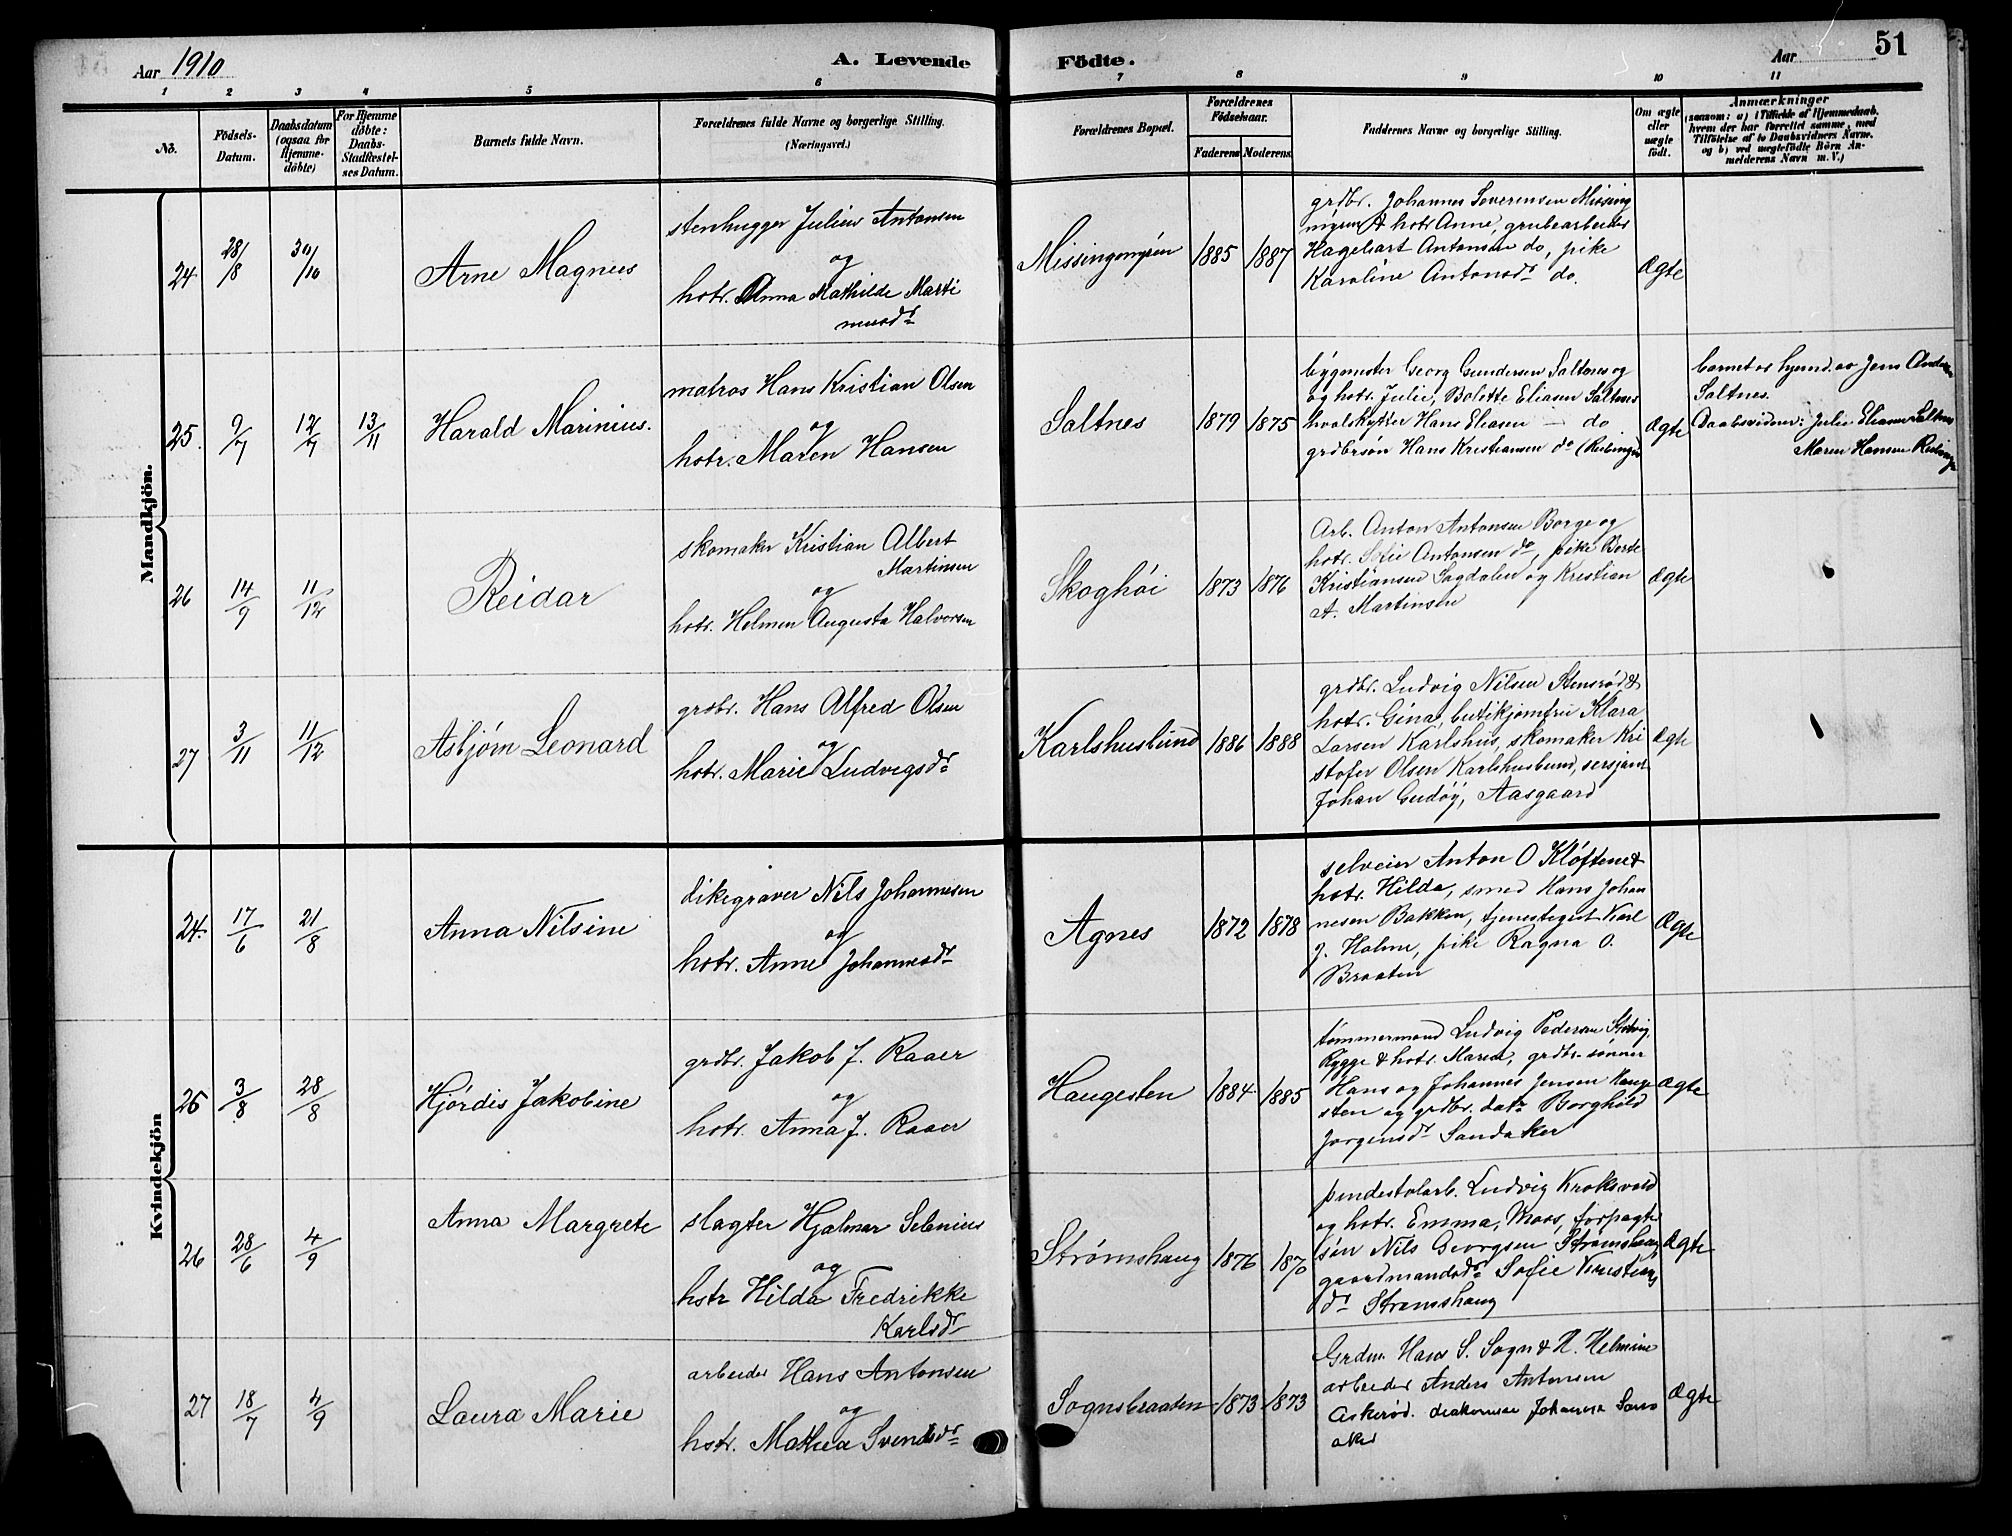 Aar 1910
A. Levende
Födte.
Aar
51
1 2 3 4 5 6 7 8 9 10 11
No.
Födsels-
Datum.
Daabsdatum
(ogsaa for
Hjemme-
döbte)
For Hjemme
döbte:
Daabs-
Stadfæstel-
ses Datum.
Barnets fulde Navn.
Forældrenes fulde Navne og borgerlige Stilling.
(Næringsvei.)
Forældrenes Bopæl.
Forældrenes
Födselsaar.
Faderens
Moderens
Faddernes Navne og borgerlige Stilling.
Om ægte
eller
uægte
födt.
Anmærkninger
(saasom: a) i Tilfælde af Hjemmedaab,
hvem der har forrettet samme, med
Tilföielse af to Daabsvidners Navne,
og b) ved uægtefödte Börn An-
melderens Navn m. V.)
Mandkjön.
24
28/8
30/10
Arne Magnus
stenhugger Julius Antonsen
og
hstr. Anna Mathilde Marti
nusdr
Missingmyren
1885
1887
grdbr. Johannes Severensen Missing
myren & hstr Anne, grubearbeider
Hagebart Antonsen do, pike
Karoline Antonsdr do.
Ægte
25.
9/7
12/7
13/11
Harald Marinius.
matros Hans Kristian Olsen
og
hstr. Maren Hansen
Saltnes
1879
1875
bygmester Georg Gundersen Saltnes og
og hstr. Julie, Bolette Eliasen Saltnes
hvalskytter Hans Eliasen — do
grdbrsøn Hans Kristiansen do
Ægte
barnet er hjemd. av Jens
Saltnes.
Daabsvidner: Julie Eliasen Saltnes
Maren Hansen
26
14/9
11/12
Reidar
skomaker Kristian Albert
Martinsen
og
hstr. Helmen Augusta Halvorsen
Skoghøi
1873
1876
Arb. Anton Antonsen Borge og
hstr. Sofie Antonsen do, pike Borte
Kristiansen Sagdalen og Kristian
A. Martinsen
Ægte
27
3/11
11/12
Asbjørn Leonard
grdbr. Hans Alfred Olsen
og
hstr. Marie Ludvigsdr
Karlshuslund
1886
1888
grdbr. Ludvig Nilsen Stensrød &
hstr. Gina, butikjomfru Klara
Larsen Karlshus, skomaker Kri
stofer Olsen Karlshuslund, sersjant
Johan Gudøy, Aasgaard
Ægte
Kvindekjön
24.
17/6
21/8
Anna Nilsine
dikegraver Nils Johannesen
og
hstr. Anne Johannesdr
Agnes
1872
1878
selveier Anton O Kløftene &
hstr. Hilda, smed Hans Johan
nesen Bakken, tjenestegut Karl
J. Holme, pike Ragna O.
Braaten
Ægte
25
3/8
28/8
Hjørdis Jakobine
grdbr. Jakob J. Raaer
og
hstr. Anna J. Raaer
Haugesten
1884
1885
tømmermand Ludvig Pedersen
Rygge & hstr. Maren, grdbr. sønner
Hans og Johannes Jensen Hauge
sten og grdbr. datr Borghild
Jorgensdr Sandaker
Ægte
26
28/6
4/9
Anna Margrete
slagter Hjalmar Selenius
og
hstr Hilda Fredrikke
Karlsdr
Strømshaug
1876
1870
pindestolarb. Ludvig Kroksvold
og hstr. Emma, Moss, forpagter
søn Nils Georgsen Strømshaug
gaardmandsdr Sofie Kristians
dr Strømshaug
Ægte
27
18/7
4/9
Laura Marie
arbeider Hans Antonsen
og
hstr. Mathea Svendsdr
Sognsbraaten
1873
1873
Grdm. Hans S. Sogn & H. Helmine
arbeider Anders Antonsen
Askerød. Johanna
Ægte